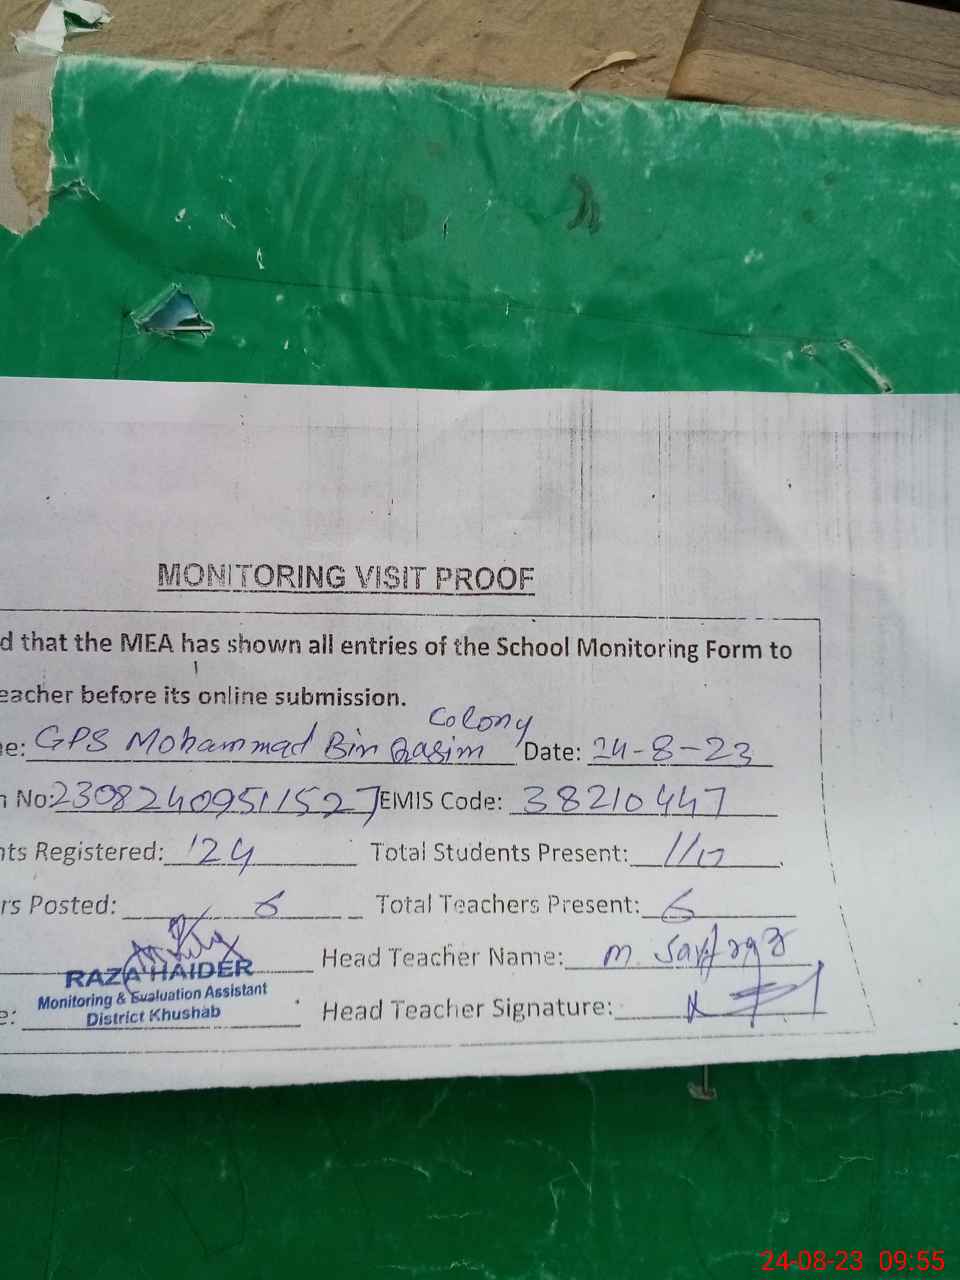 MONITORING VISIT PROOF
d that the MEA has shown all entries of the School Monitoring Form to
eacher before its online submission.
Colony
e: GPS Mohammad Bin Qasim Date: 24-8-23
n No: 23082409511527 EMIS Code: 38210447
nts Registered: 124 Total Students Present:
rs Posted: 6 Total Teachers Present: 6
Head Teacher Name: M. Sarfraz
RAZA HAIDER
Monitoring & Evaluation Assistant
District Khushab
e: Head Teacher Signature:
24-08-23 09:55